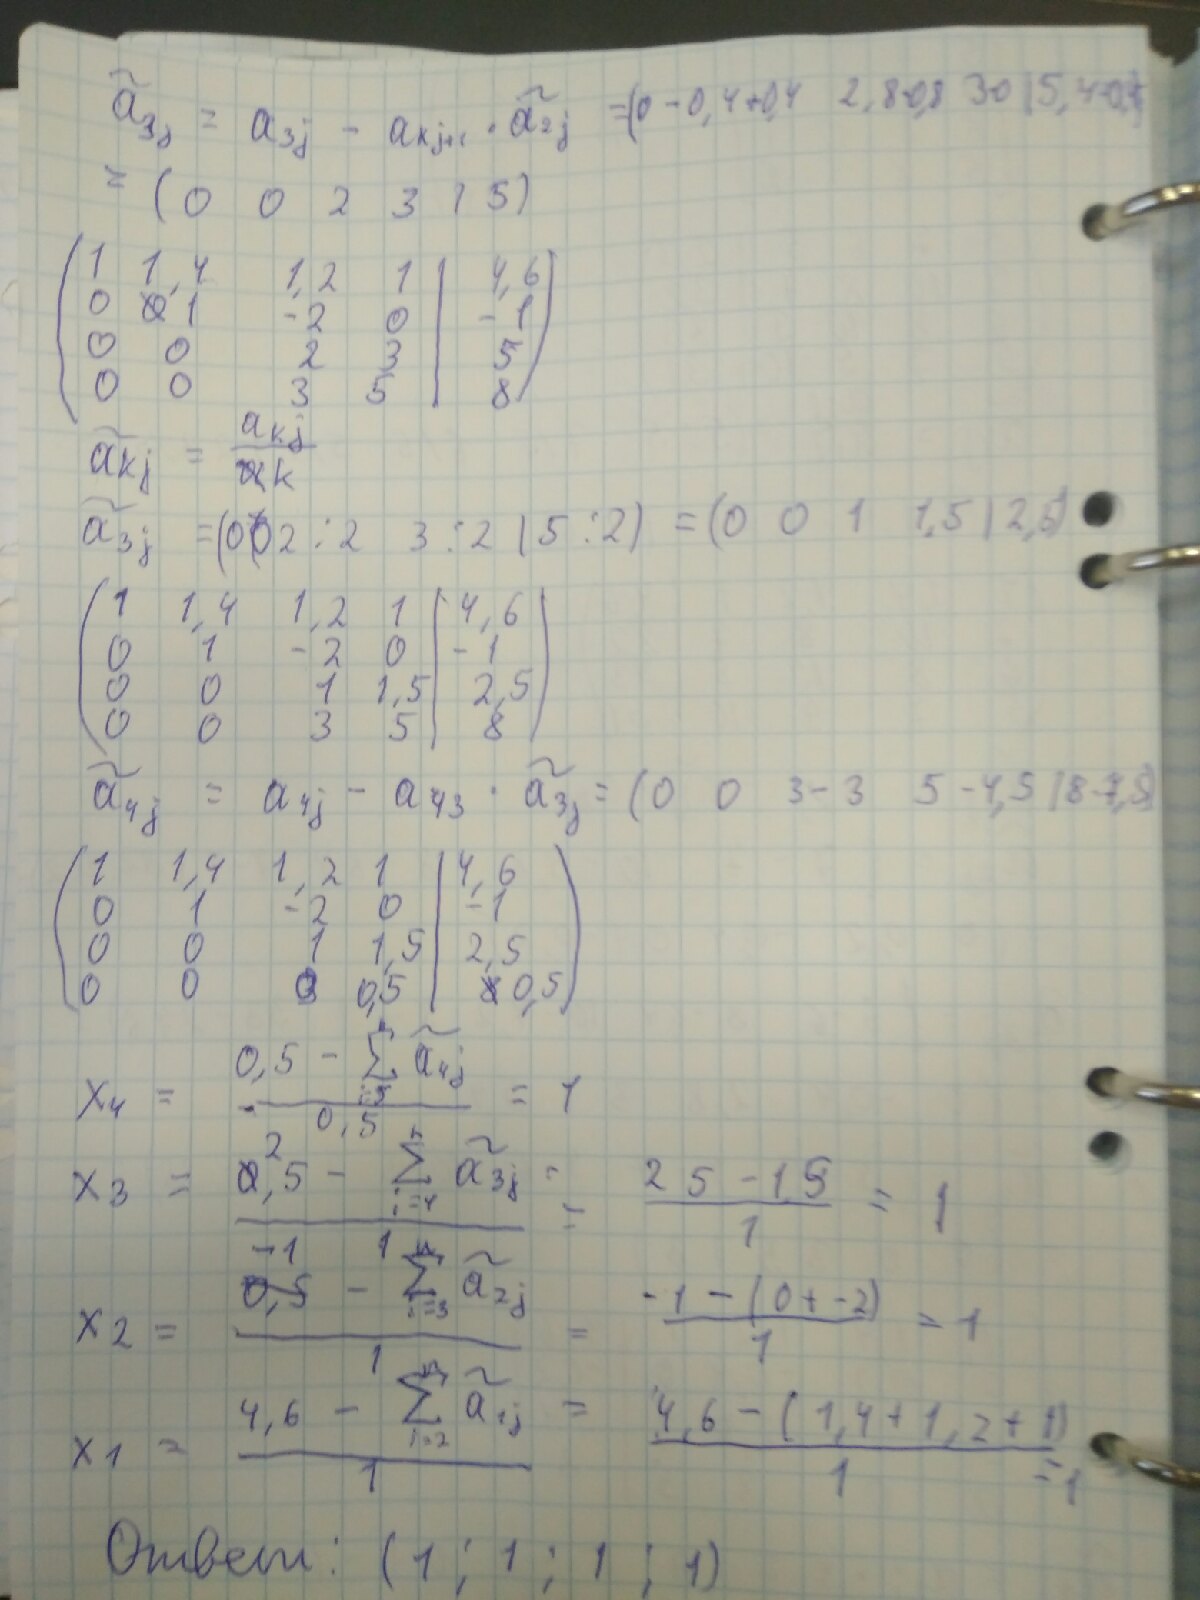 ã₃ⱼ = a₃ⱼ - aₖⱼ₊₁ · ã₂ⱼ = (0 -0,4+0,4 2,8-0,8 3-0 | 5,4-0,4)
= (0 0 2 3 | 5)
(1 1,4 1,2 1 | 4,6)
(0 1 -2 0 | -1)
(0 0 2 3 | 5)
(0 0 3 5 | 8)
ãₖⱼ = aₖⱼ / k
ã₃ⱼ = (0 0 2:2 3:2 | 5:2) = (0 0 1 1,5 | 2,5)
(1 1,4 1,2 1 | 4,6)
(0 1 -2 0 | -1)
(0 0 1 1,5 | 2,5)
(0 0 3 5 | 8)
ã₄ⱼ = a₄ⱼ - a₄₃ · ã₃ⱼ = (0 0 3-3 5-4,5 | 8-7,5)
(1 1,4 1,2 1 | 4,6)
(0 1 -2 0 | -1)
(0 0 1 1,5 | 2,5)
(0 0 0 0,5 | 0,5)
x₄ = (0,5 - Σ ã₄ⱼ) / 0,5 = 1
x₃ = (2,5 - Σ i=4 ã₃ⱼ) / 1 = (2 5 - 1,5) / 1 = 1
x₂ = (-1 - Σ i=3 ã₂ⱼ) / 1 = (-1 - (0+-2)) / 1 = 1
x₁ = (4,6 - Σ i=2 ã₁ⱼ) / 1 = (4,6 - (1,4+1,2+1)) / 1 = 1
Ответ: (1 ; 1 ; 1 ; 1)